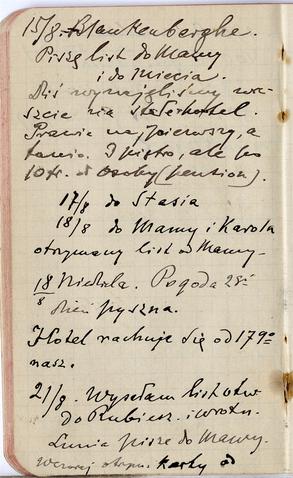 15/8. Blankenberghe.
Piszę list do Mamy
i do Miecia.
Dziś wynajęliśmy wre-
szcie na Hotel.
Prawie najpierwszy, a
tanio. I piętro, ale po
10 fr. od osoby (pension).
17/8 do Stasia
18/8 do Mamy i Karola
otrzymany list od Mamy.
18/8 Niedziela. Pogoda
dzień pyszna.
Hotel rachuje się od 17go
nasz.
21/8. Wysłałem list otw
do Rubiesz. i
Lunia pisze do Mamy.
Wczoraj otrzym. kartę od